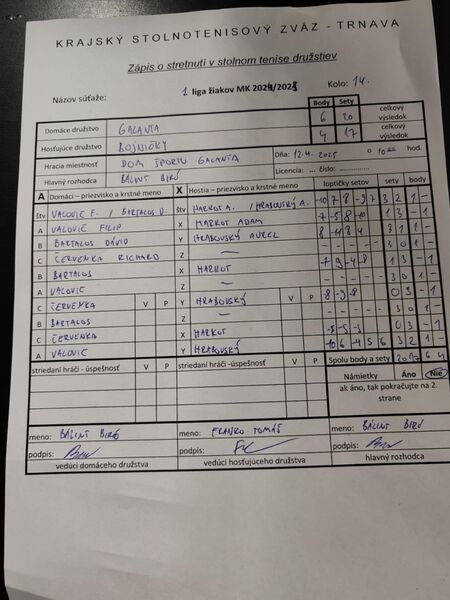 KRAJSKÝ STOLNOTENISOVÝ ZVÄZ - TRNAVA
Zápis o stretnutí v stolnom tenise družstiev
Názov súťaže: 1. liga žiakov MK 2024/2025 Kolo: 14.
Body Sety
Domáce družstvo GALANTA 6 20 celkový výsledok
Hosťujúce družstvo BOJNIČKY 4 17 celkový výsledok
Hracia miestnosť DOM ŠPORTU GALANTA Dňa: 12.4.2025 o 10:00 hod.
Hlavný rozhodca BÁLINT BIRÓ Licencia: ... číslo:
A Domáci - priezvisko a krstné meno X Hostia - priezvisko a krstné meno loptičky setov sety body
štv VALOVIC F. / BARTALOS D. štv HARKOT A. / HRABOVSKÝ A. -10 7 8 -9 7 3 2 1 -
A VALOVIC FILIP X HARKOT ADAM 1 3 - 1
B BARTALOS DÁVID Y HRABOVSKÝ AUREL 3 1 1 -
C ČERVENKA RICHARD Z — 3 0 1 -
B BARTALOS X HARKOT -7 9 -4 -8 1 3 - 1
A VALOVIC Z — 3 0 1 -
C ČERVENKA V P Y HRABOVSKÝ V P -8 -9 -8 0 3 - 1
B BARTALOS Z — 3 0 1 -
C ČERVENKA X HARKOT -5 -5 -3 0 3 - 1
A VALOVIC Y HRABOVSKÝ -10 6 -4 5 6 3 2 1 -
striedaní hráči - úspešnosť V P striedaní hráči - úspešnosť V P Spolu body a sety 20 17 6 4
Námietky Áno Nie
ak áno, tak pokračujte na 2. strane
meno: BÁLINT BIRÓ meno: FRANKO TOMÁŠ meno: BÁLINT BIRÓ
podpis: podpis: podpis:
vedúci domáceho družstva vedúci hosťujúceho družstva hlavný rozhodca